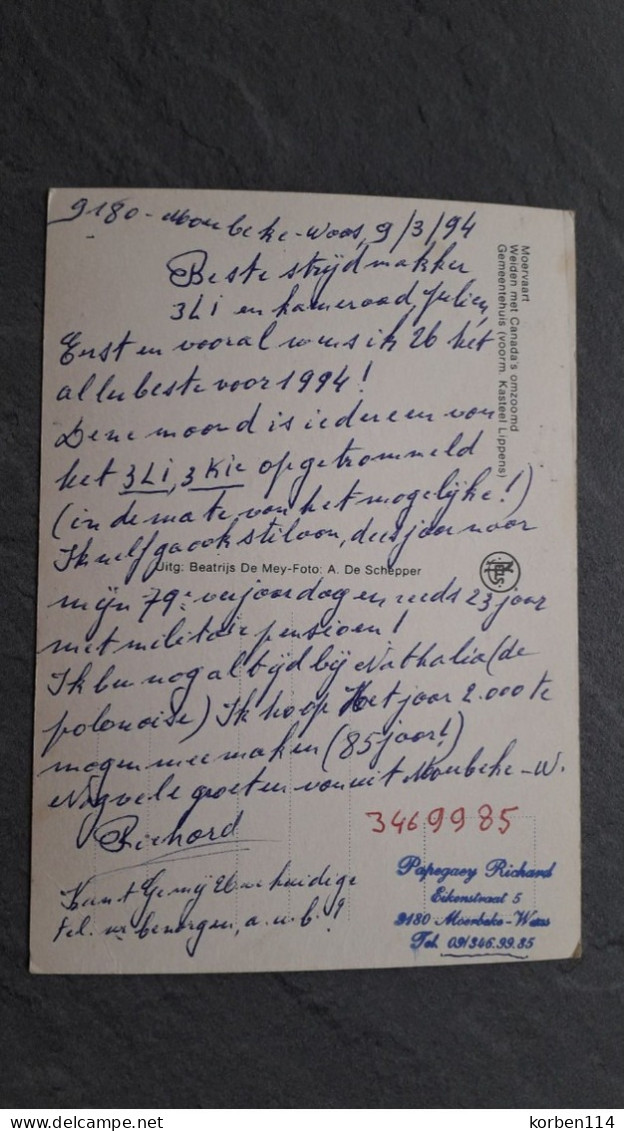 9180 - Moerbeke-Waas, 9/3/94
Beste strijdmakker
3Li en kameraad, Julien,
Eerst en vooral wens ik U het
allerbeste voor 1994!
Deze maand is iedereen van
het 3Li, 3 Kie opgetrommeld
(in de mate van het mogelijke!)
Ik zelf ga ook stilaan, dees jaar naar
mijn 79e verjaardag en reeds 23 jaar
met militair pensioen!
Ik ben nog altijd bij Nathalia (de
polonaise) Ik hoop Het jaar 2.000 te
mogen meemaken (85 jaar!)
Nog vele groeten vanuit Moerbeke-W.
Richard
Kunt Ge mij
tel. nr bezorgen, a.u.b.?
3469985
Papegaey Richard
Eikenstraat 5
9180 Moerbeke-Waas
Tel. 09/346.99.85
Moervaart
Weiden met Canada's omzoomd
Gemeentehuis (voorm. Kasteel Lippens)
Uitg: Beatrijs De Mey-Foto: A. De Schepper
delcampe.net
korben114